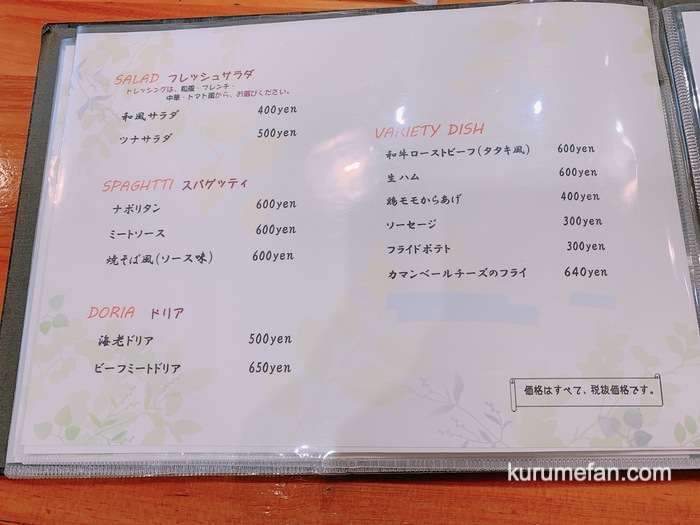 SALAD フレッシュサラダ
ドレッシングは、和風・フレンチ・
中華・トマト風から、お選びください。
和風サラダ 400yen
ツナサラダ 500yen
SPAGHTTI スパゲッティ
ナポリタン 600yen
ミートソース 600yen
焼そば風(ソース味) 600yen
DORIA ドリア
海老ドリア 500yen
ビーフミートドリア 650yen
VARIETY DISH
和牛ローストビーフ(タタキ風) 600yen
生ハム 600yen
鶏モモからあげ 400yen
ソーセージ 300yen
フライドポテト 300yen
カマンベールチーズのフライ 640yen
価格はすべて、税抜価格です。
kurumefan.com